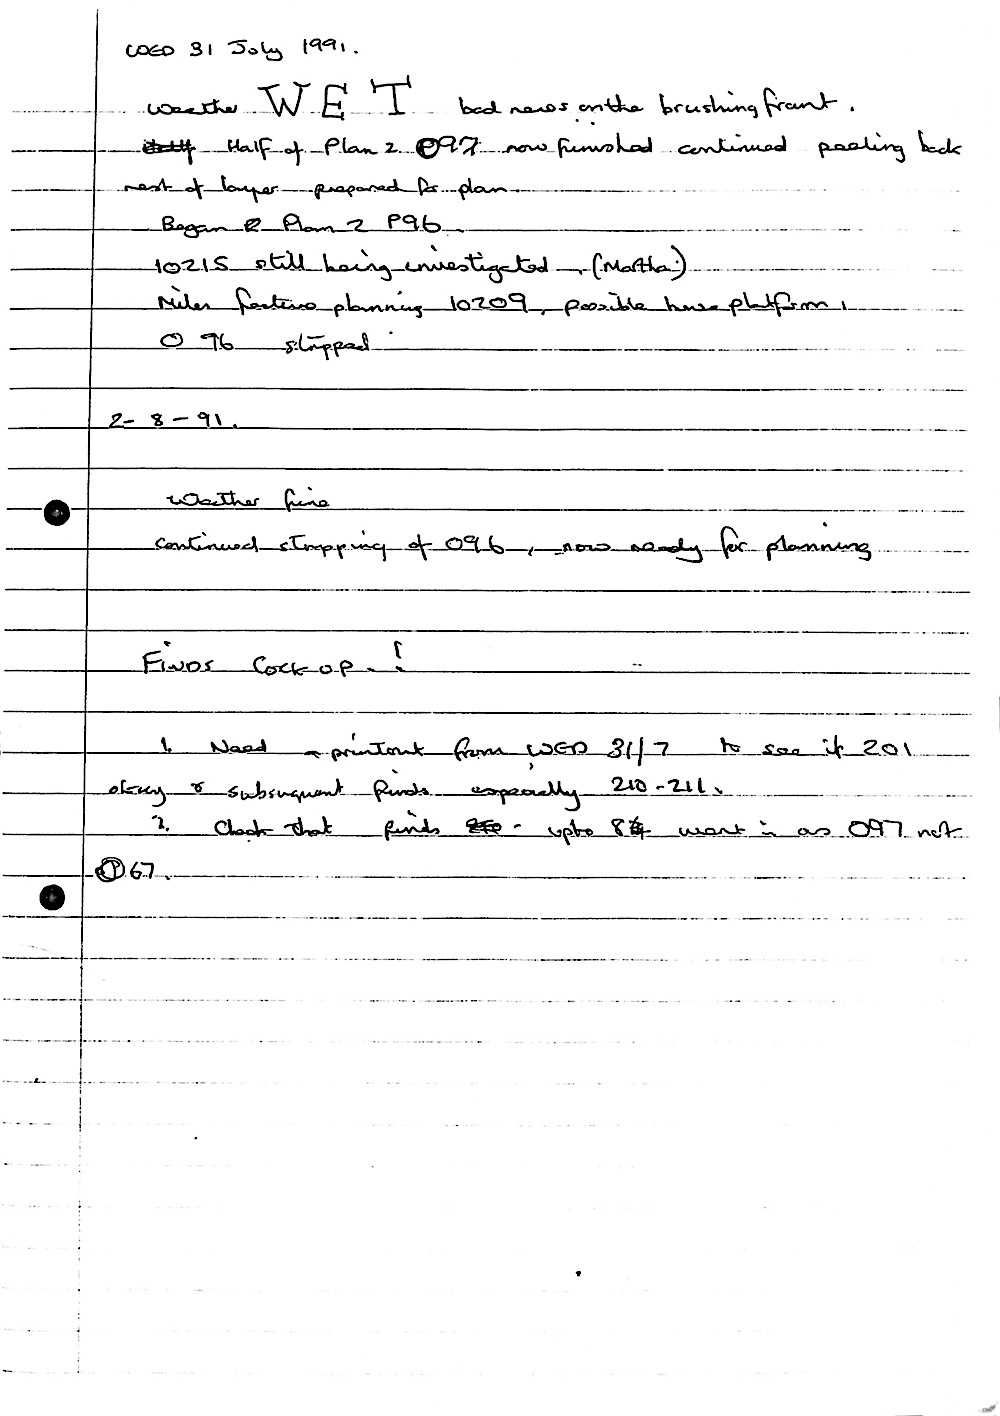 WED 31 July 1991.
Weather WET bad news on the brushing front.
Half of Plan 2 O97 now finished continued peeling back
rest of layer prepared for plan.
Began Plan 2 P96.
10215 still being investigated. (Martha)
Miles feature planning 10209, possible house platform.
O 96 stripped
2-8-91.
Weather fine
continued stripping of O96, now ready for planning
FINDS Cock up.!
1. Need a printout from WED 31/7 to see if 201
okay & subsequent finds especially 210-211.
2. Check that finds - upto 84 went in as O97 not
P67.